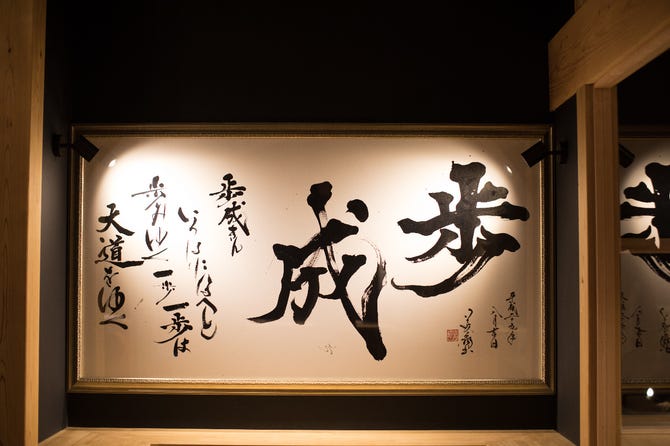 歩成
歩成さん
いろはにほへと
歩みゆく一歩一歩は
天道をゆく